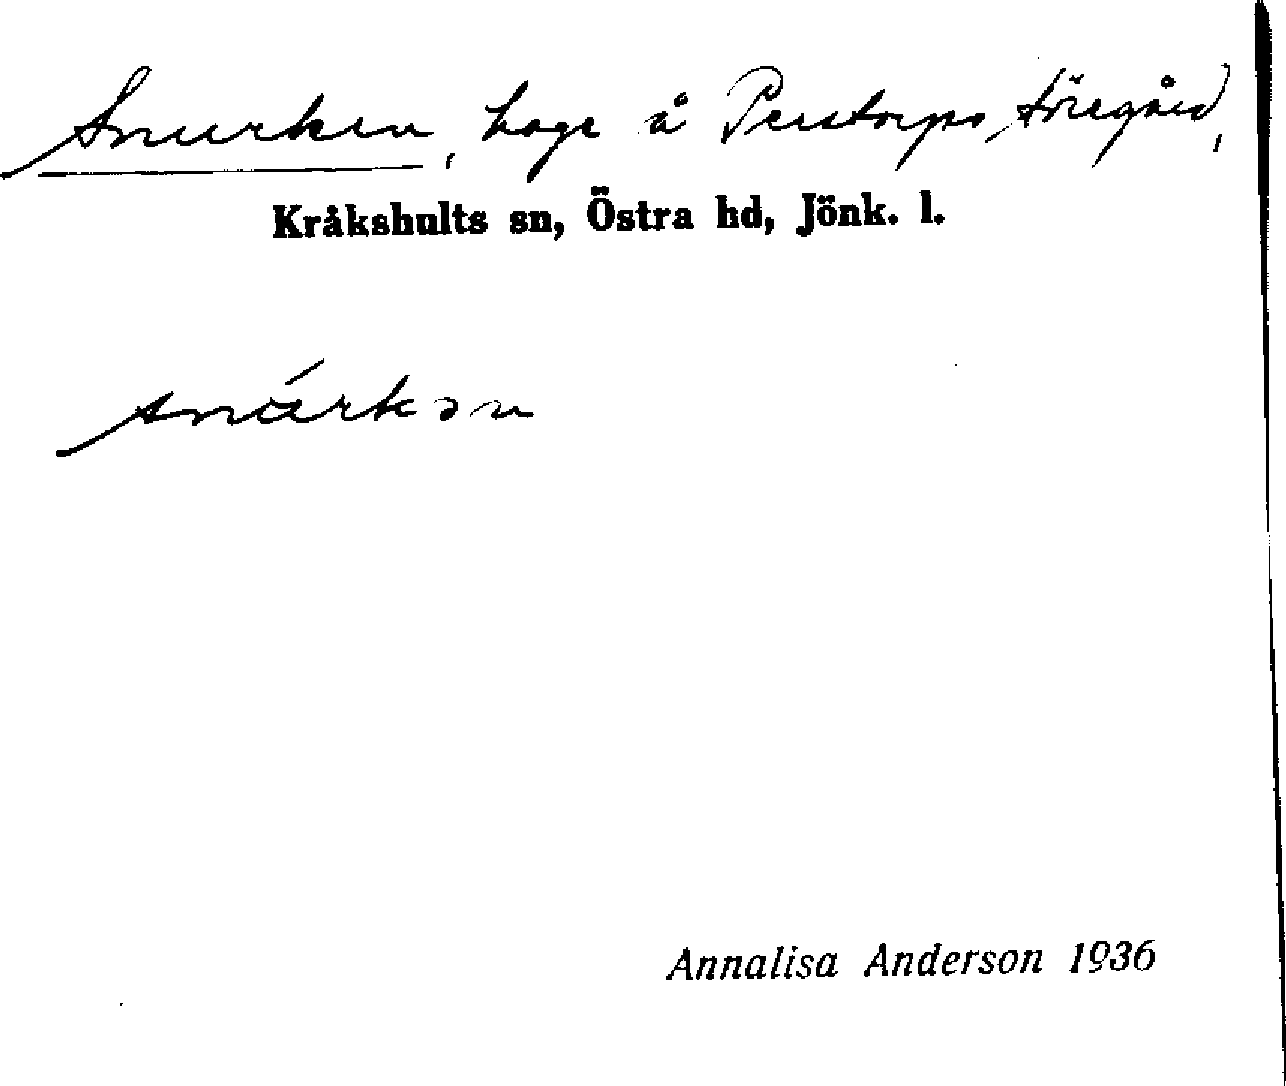 Snurken, hage å Perstorps Föregård,
Kråkshults sn, Östra hd, Jönk. l.
snúrkɘn
Annalisa Anderson 1936